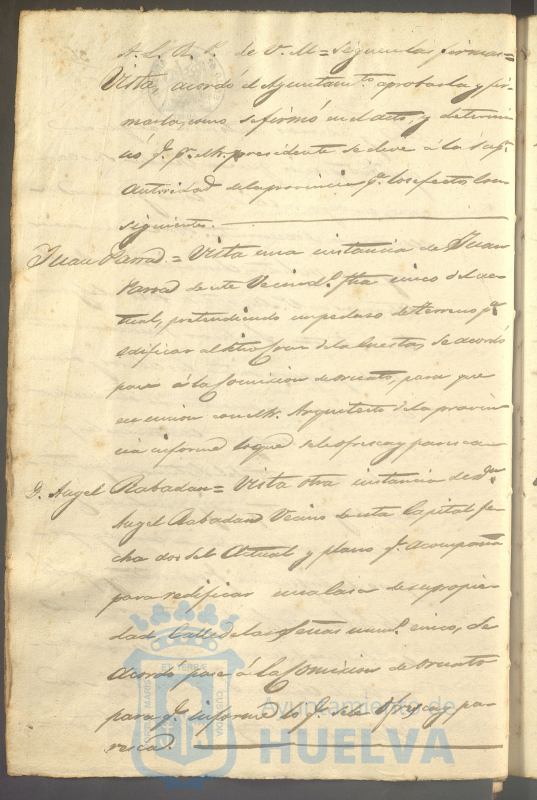 A. L. R. P. de V. M = Siguen las firmas =
Vista, acordó el Ayuntamto. aprobarla y fir-
marla, como se firmó en el acto; y determi-
nó q. pr. el Sr. presidente se eleve á la Supr.
Autoridad de la provincia pa. los efectos con-
siguientes.
Juan Parra = Vista una instancia de Juan
Parra de este Vecind.o fha cinco del ac-
tual, pretendiendo un pedaso de terreno pa.
edificar al sitio Cruz de la Cuesta, se acordó
pase á la Comision de ornato, para que
en union con el Sr. Arquitecto de la provin-
cia informe lo que se le ofresca y paresca
D. Angel Rabadan = Vista otra instancia de Dn.
Angel Rabadan Vecino de esta Capital fe-
cha dos del Actual y plano q. acompaña
para redificar una casa de su propie-
dad, Calle de las num.o cinco, se
acordó pase á la Comision de ornato
para q. informe lo q. se le ofresca y pa-
resca.
Ayuntamiento de
HUELVA